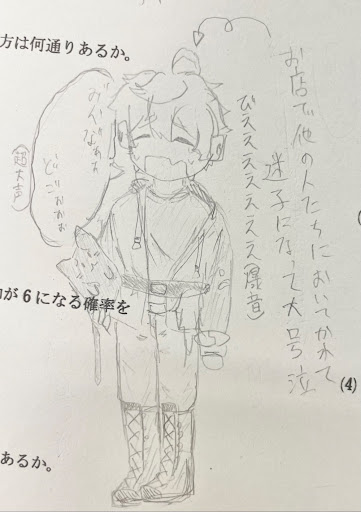 方は何通りあるか。
お店で他の人たちにおいてかれて
迷子になって大号泣
びえええええええ(爆音)
みんなぁぁ
どごぉぉぉ
(超大声)
が6になる確率を
(4)
あるか。